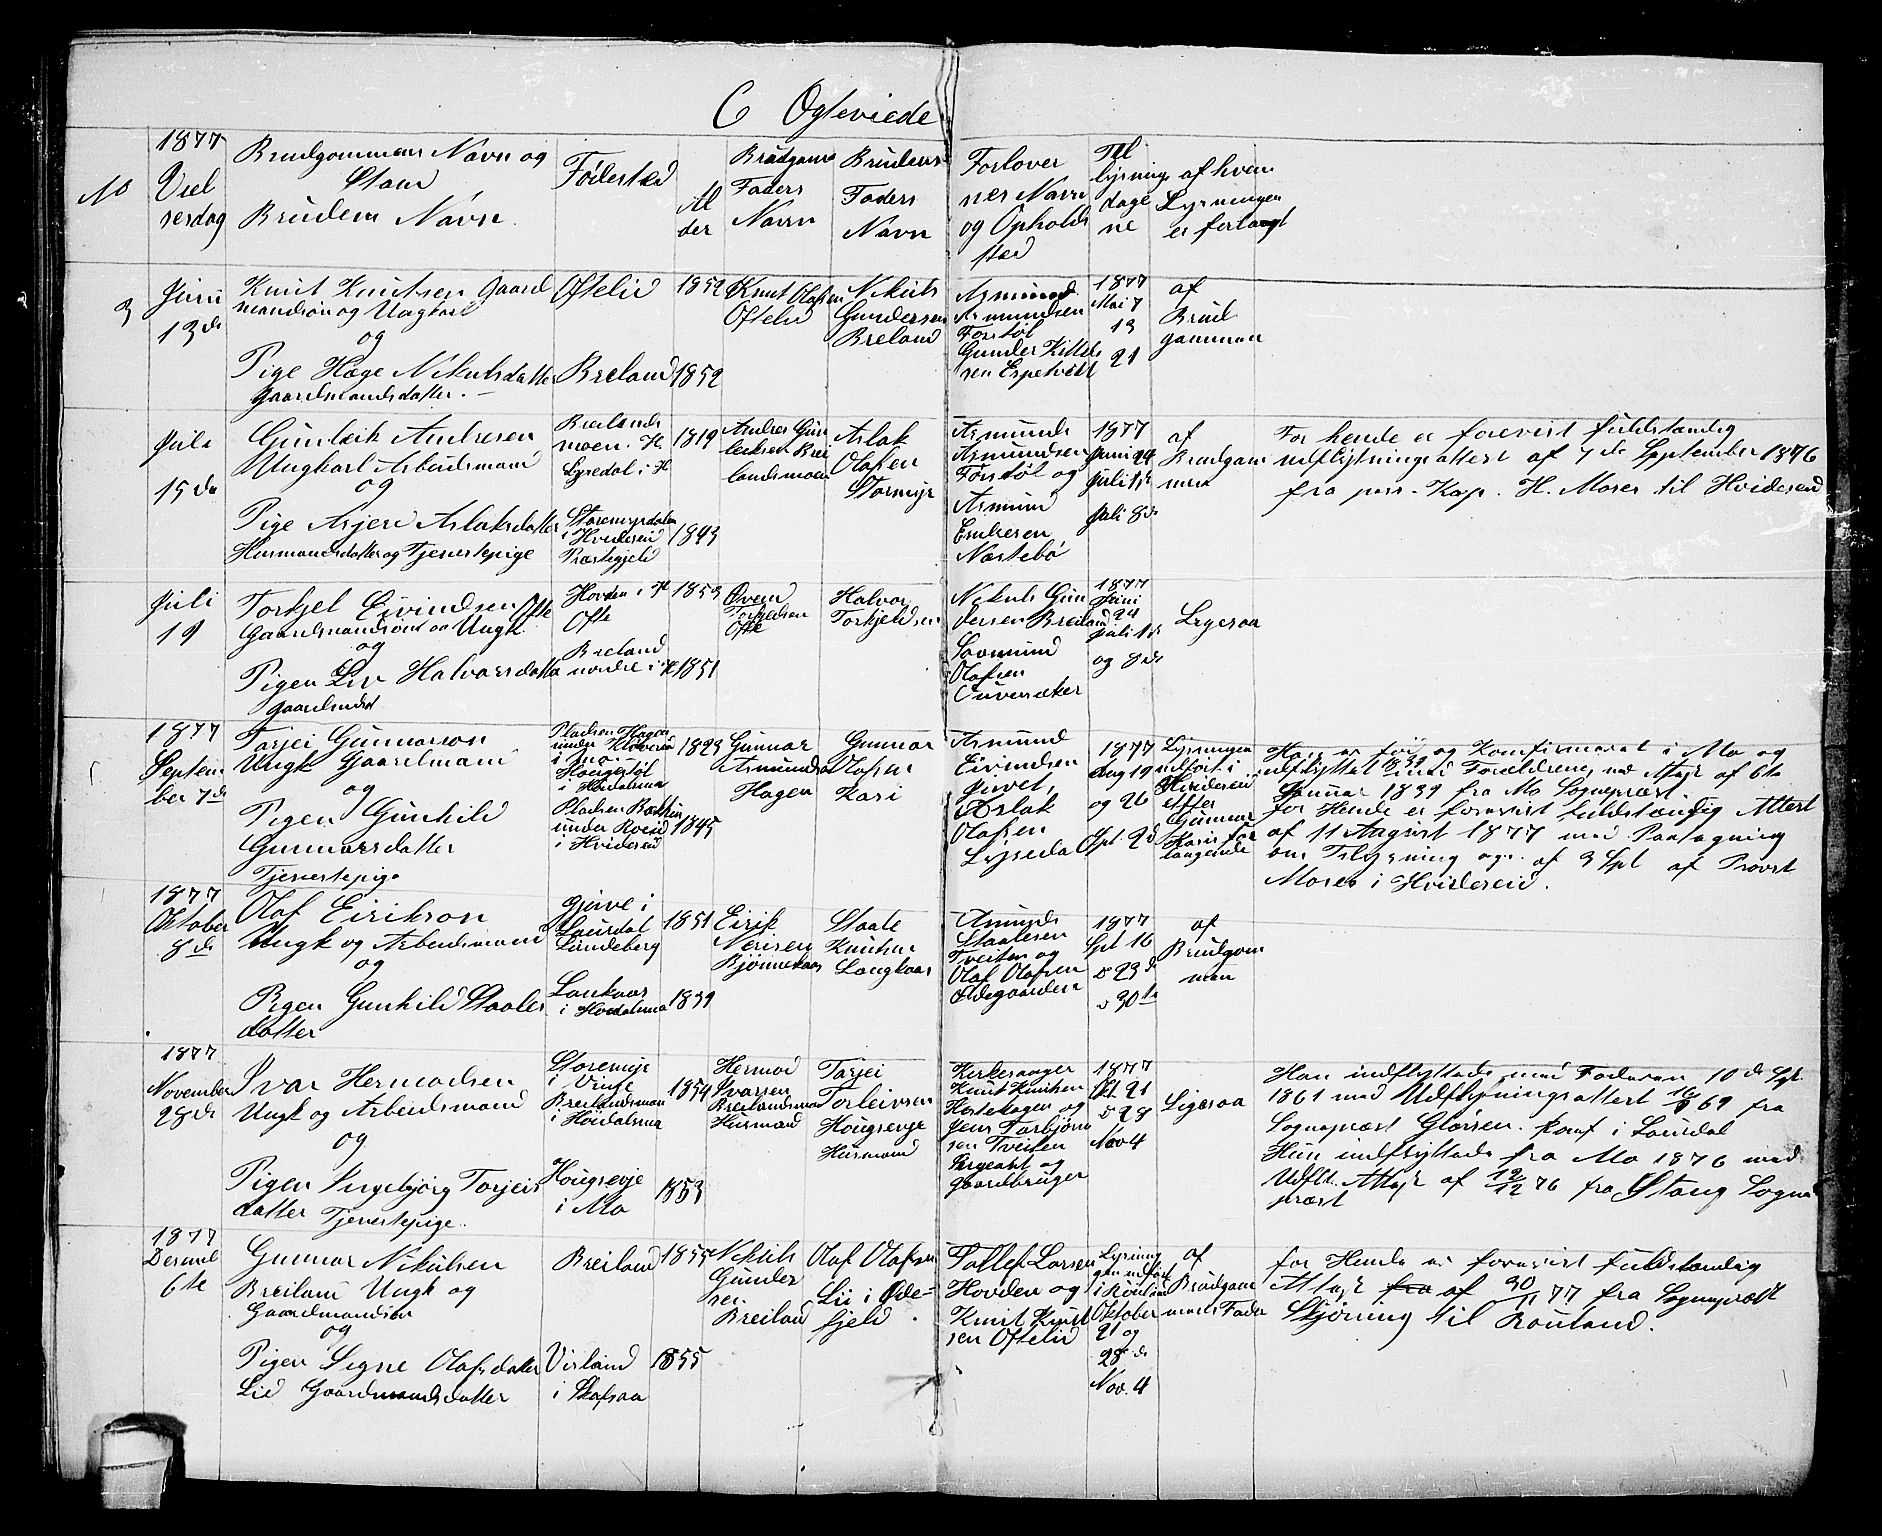 C Ogteviede
No
1877
Viel
sesdag
Brudgommens Navn og
Stand
Brudens Navn.
Fødested
Al
der
Brudgoms
Faders
Navn
Brudens
Faders
Navn
Forlover
nes Navn
og Ophold
sted
Til
lysnings
dage
ne
af hvem
Lysningen
er forlangt
3
Juni
13de
Knut Knutsen Gaard
mandsøn og Ungkarl
og
Pige Hæge Nikulsdatter
Gaardmandsdatter. -
Oftelid
Breland
1852
1852
Knut Olafsen
Oftelid
Nikuls
Gundersen
Breland
Asmund
Asmundsen
Forstøl
Gunder Kittels
sen Espetveit
1877
Mai 7
13
21
af
Brud
gommen
Juli
15de
Gunleik Andresen
Ungkarl Arbeidsmand
og
Pige Asjerd Aslaksdatter
Husmandsdatter og Tjenestepige
Breilands
moen. H.
Lysedal i H
Storemyrdalen
i Hvideseid
Præstegjeld
1819
1843
Andres Gun
leiksen Brei
landsmoen
Aslak
Olafsen
Stormyr
Asmund
Asmundsen
Forstøl og
Asmund
Næstebø
1877
Juni 24
Juli 1ste
Juli 8de
af
Brudgom
men
For hende er forevist fuldstændig
udflytningsattest af 7de September 1876
fra pers. Kap. H. Moses til Hvideseid
Juli
19
Torkjel Eivindsen Ofte
Gaardmandsøn og Ungk.
og
Pigen Liv Halvorsdatter
Gaardmdsd
Hovden i H
Ofte
Breland
nordre i H
1853
1851
Øvend
Torkjelsen
Ofte
Halvor
Torkjeldsen
Nikuls Gun
dersen Breiland
Olafsen
1877
Juni
24
Juli 1ste
og 8de
Ligesaa
1877
Septem
ber 7de
Tarjei Gunnarson
Ungk Gaardmand
og
Pigen Gunhild
Gunnarsdatter
Tjenestepige
Pladsen Hagen
under Kløvereid
i Mo -
Hougestøl
i Høidalsmo
Pladsen Bakken
under Kveid
i Hvideseid
1823
1845
Gunnar
Asmundsen
Hagen
Gunnar
Olafsen
Kasi
Asmund
Eivindsen
Juvet,
Aslak
Olafsen
Lysedal
1877
Aug 19
og 26
Spt 2de
Lysningen
udført i
Hvideseid
efter
Gunnar
Kasis for
langende
Han er fød og Konfirmeret i Mo og
indflyttet 1839 med Forældrene, ved Attest af 6te
Januar 1839 fra Mo Sognepræst.
for Hende er forevist fuldstændig Attest
af 11 August 1877 med Paategning
om Tilysning ogs. af 3 Spt af Provst
Moses i Hvideseid.
1877
Oktober
8de
Olaf Eirikson
Ungk og Arbeidsmand
og
Pigen Gunhild Staales
datter
Gjuve i
Laurdal
Lindeberg
Lonkaas
i Høidalsmo
1851
1839
Eirik
Nerisen
Bjønnekaas
Staale
Knutsen
Langkaas
Amund
Staalesen
Tveiten og
Olaf Olafsen
Ødegaarden
1877
Spt 16
" 23de
" 30te
af
Brudgom
men
1877
November
28de
Ivar Hermodsen
Ungk og Arbeidsmand
og
Pigen Ingebjörg Tarjeis
datter Tjenestepige.
Storemyr
i Vinje
Breilandsmoen
i Höidalsmo
Hougsevje
i Mo
1854
1853
Hermod
Ivarsen
Breilandsmoen
Husmand
Tarjei
Torleivsen
Hougsevje
Husmand
Kirkesanger
Knut Knutsen
Hestehagen og
Jens Torbjørn
sen Tveiten
Sergeant og
Gaardbruger
1877
Okt. 21
" 28
Nov 4
Ligesaa
Han indflyttede med Faderen 10de Spt
1861 med Udflytningsattest 16/9 69 fra
Sognepræst Glörsen. konf i Laurdal
Hun indflyttede fra Mo 1876 med
Udflt. Attest af 12/12 76 fra Stang Sogne
præst
1877
Desembr
6te
Gunnar Nikulsen
Breiland Ungk og
Gaardmandsön
og
Pigen Signe Olafsdatter
Lid Gaardmandsdatter
Breiland
Visland
i Skafsaa
1855
1855
Nikuls
Gunder
sen
Breiland
Olaf Olafsen
Lii i Øde-
fjeld.
Tallef Larsen
Hovden og
Knut Knut
sen Oftelid
Lysning
gen udført
i Rauland
Oktober
21 og
28de
Nov. 4
af
Brudgom
mens Fader
for Hende er forevist fuldstændig
Attest fra af 30/11 77 fra Sognepræst
Skjöning til Rauland.